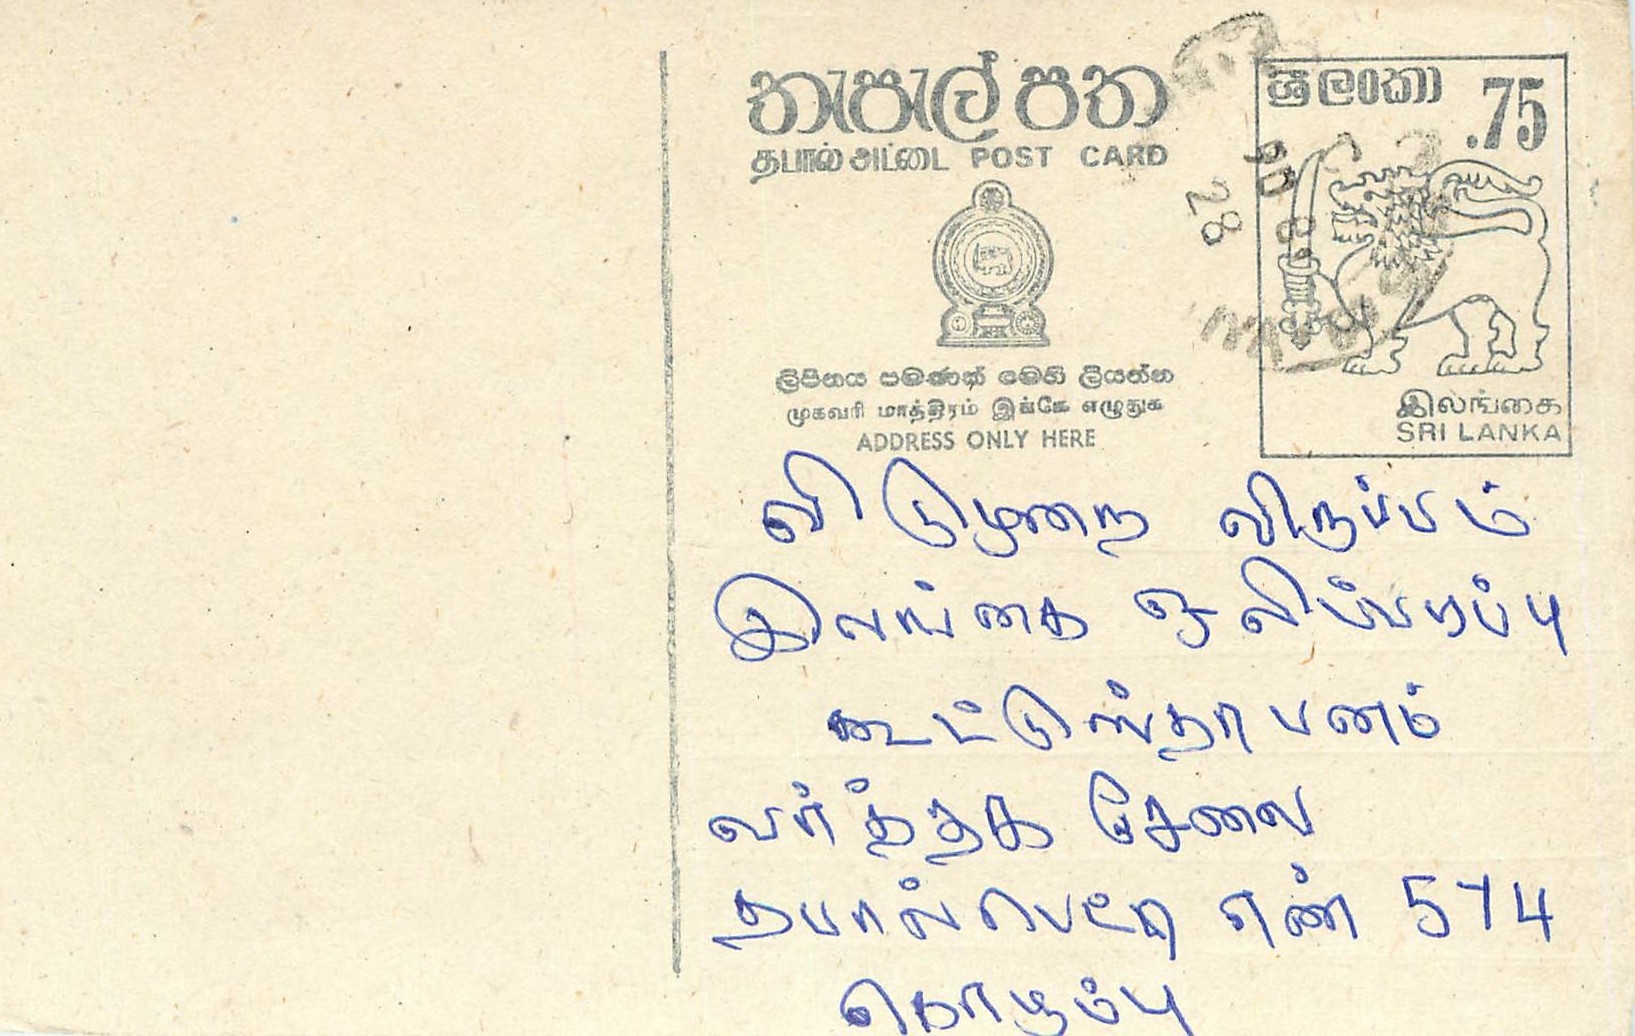 තැපැල් පත
தபால் அட்டை POST CARD
ශ්‍රී ලංකා .75
ලිපිනය පමණක් මෙහි ලියන්න
முகவரி மாத்திரம் இங்கே எழுதுக
ADDRESS ONLY HERE
இலங்கை
SRI LANKA
28
விடுமுறை விருப்பம்
இலங்கை ஒலிப்பரப்பு
கூட்டுஸ்தாபனம்
வர்த்தக சேவை
தபால் பெட்டி எண் 574
கொழும்பு